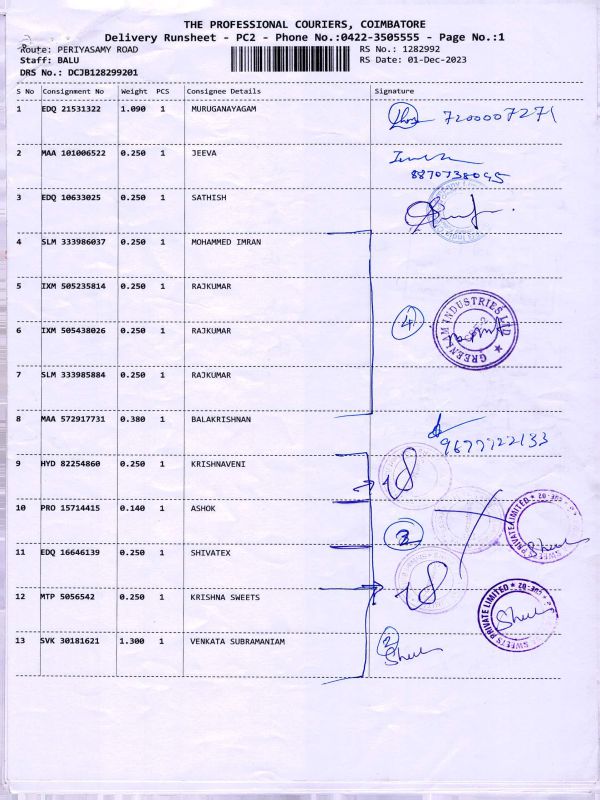 THE PROFESSIONAL COURIERS, COIMBATORE
Delivery Runsheet - PC2 - Phone No.:0422-3505555 - Page No.:1
Route: PERIYASAMY ROAD
RS No.: 1282992
Staff: BALU
RS Date: 01-Dec-2023
DRS No.: DCJB128299201
S No Consignment No Weight PCS Consignee Details Signature
1 EDQ 21531322 1.090 1 MURUGANAYAGAM 7200007271
2 MAA 101006522 0.250 1 JEEVA
8870738095
3 EDQ 10633025 0.250 1 SATHISH
4 SLM 333986037 0.250 1 MOHAMMED IMRAN
5 IXM 505235814 0.250 1 RAJKUMAR
4
GREENLAM INDUSTRIES LTD
6 IXM 505438026 0.250 1 RAJKUMAR
7 SLM 333985884 0.250 1 RAJKUMAR
8 MAA 572917731 0.380 1 BALAKRISHNAN
9677722133
9 HYD 82254860 0.250 1 KRISHNAVENI
10 PRO 15714415 0.140 1 ASHOK
3
SWEETS PRIVATE LIMITED * CBE-02 *
11 EDQ 16646139 0.250 1 SHIVATEX
12 MTP 5056542 0.250 1 KRISHNA SWEETS
SWEETS PRIVATE LIMITED * CBE-02 *
13 SVK 30181621 1.300 1 VENKATA SUBRAMANIAM
2